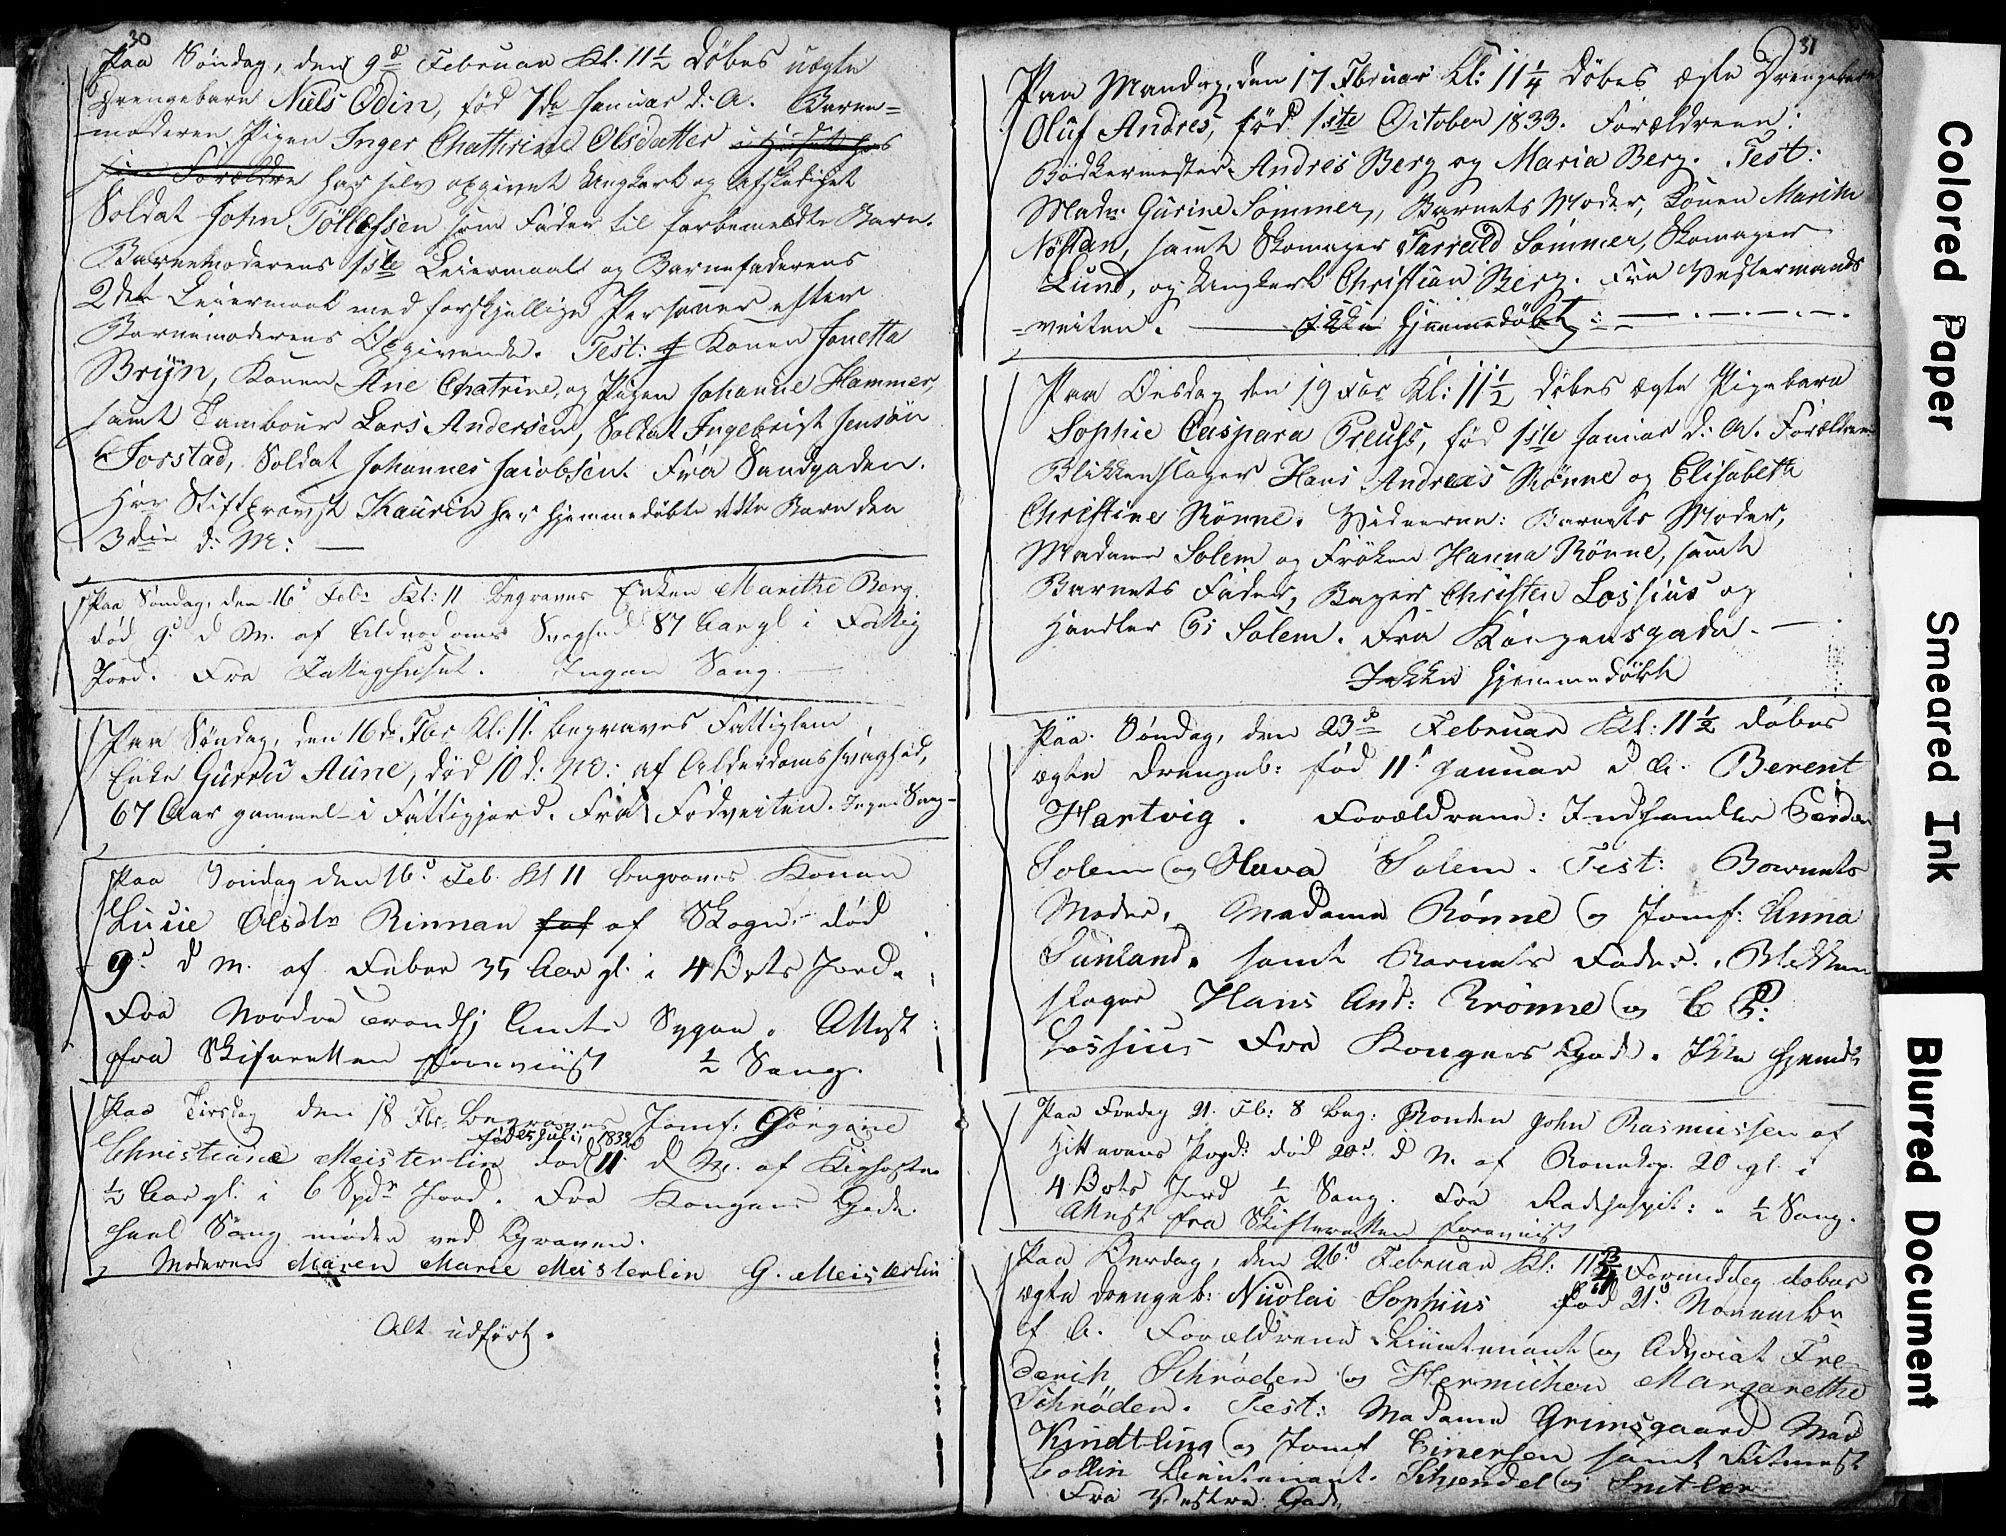 30
Paa Søndag, den 9de Februar Kl: 11½ døbes uægte
Drengebarn Niels Odin, fød 7de Januar d: A. Barne=
moderen Pigen Inger Chathrine Olsdatter i Huset hos
sine Forældre har selv opgivet Ungkarl og afskediget
Soldat John Tøllefsen som Fader til forbemeldte Barn.
Barnemoderens 1ste Leiermaal og Barnefaderens
2det Leiermaal med forskjellige Personer efter
Barnemoderens Opgivende. Test: Konen Jonetta
Brÿn, Konen Ane Chatrine, og Pigen Johanne Hammer,
samt Tambour Lars Andersen, Soldat Ingebrigt Jensøn
Forstad, Soldat Johannes Jacobsen. Fra Sandgaden.
Hr Stiftprovst Kaurin har hjemmedøbt dette Barn den
3die d: M: —
Paa Søndag, den 16d Feb: Kl: 11 begraves Enken Marithe Berg.
død 9d d M. af Alderdoms Svaghed 87 Aar gl i Fattig
Jord. Fra Fattighuset. Ingen Sang.
Paa Søndag, den 16de Fbr Kl: 11. begraves Fattiglem
Enke Gurru Aune, død 10 d: M: af Alderdomssvaghed,
67 Aar gammel i Fattigjord. Fra Fodveiten. Ingen Sang
Paa Søndag den 16d Feb. Kl 11 begraves Konen
Lucie Olsdtr Rinnan af Skogn død
9d d M. af Feber 35 Aar gl. i 4 Orts Jord.
Fra Nordre Trondhj Amts Sygeh. Attest
fra Skifteretten foreviist ½ Sang.
Paa Tirsdag den 18 Fbr. begraves Jomf. Gørgine
fød 25 Juli 1833
Christiane Meisterlin død 11 d M. af Kighoste
½ Aar gl. i 6 Spd Jord. Fra Kongens Gade.
heel Sang møder ved Graven.
Moderen Maren Marie Meisterlin G. Meisterlin
Alt udført.
31
Paa Mandag, den 17 Februar Kl: 11¼ døbes ægte Drengebarn
Oluf Andres, fød 1ste October 1833. Forældrene:
Bødkermester Andres Berg og Maria Berg. Test:
Mad: Gurine Sommer, Barnets Moder, Konen Marithe
Nøstan, samt Skomager Tarrald Sommer, Skomager
Lund, og Ungkarl Christian Berg. Fra Vestermands
=veiten. — Ikke Hjemmedøbt
Paa Onsdag den 19 Fbr Kl: 11½ døbes ægte Pigebarn
Sophie Caspara Preuss, fød 1ste Januar d: A. Forældrene
Blikkenslager Hans Andreas Rønne og Elisabeth
Christine Rønne. Vidnerne: Barnets Moder,
Madame Solem og Frøken Hanna Rønne, samt
Barnets Fader, Bager Christen Lossius og
Handler Solem. Fra Kongensgade.
Ikke hjemmedøbt
Paa Søndag, den 23de Februar Kl: 11½ døbes
ægte Drengeb: fød 11t Januar d A. Berent
Hartvig. Forældrene: Indhandler
Solem og Olava Solem. Test: Barnets
Moder, Madame Rønne og Jomf: Anna
Sunland, samt Barnets Fader, Blikken
slager Hans And: Rrønne og C P:
Lossius Fra Kongens Gade. Ikke hjemdt
Paa Fredag 21. Fb: 8 beg: Bonden John Rasmussen af
Hitterens Prgd: død 20d d M. af 20 gl. i
4 Orts Jord ½ Sang. Fra Radhospit: ½ Sang.
Attest fra Skifteretten foreviist
Paa Onsdag, den 26d Februar Kl: 11¾ Formiddag døbes
ægte Drengeb: Nicolai Sophius fød 21d Novembr
f A. Forældrene Lieutenant og Advocat Fre=
derich Schrøder og Hermichen Margarethe
Schrøder. Test: Madame Grimsgaard Mad
Kindtling og Jomf Einersen samt Ritmest
Collin Lieutenant Schjendel og
Fra Vestre Gade
Colored Paper
Smeared Ink
Blurred Document